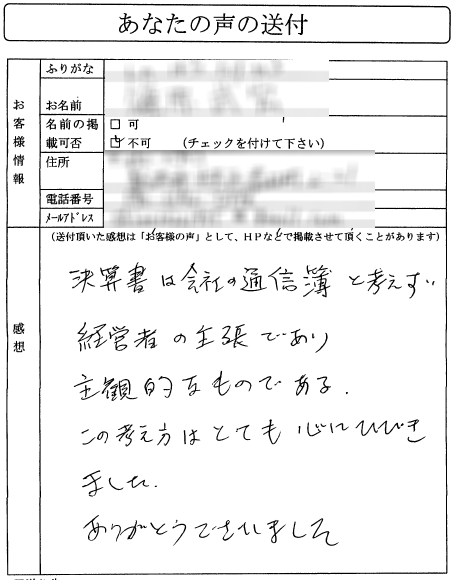 あなたの声の送付
お客様情報
ふりがな
お名前
名前の掲載可否
□ 可
☑ 不可 (チェックを付けて下さい)
住所
電話番号
メールアドレス
(送付頂いた感想は「お客様の声」として、HPなどで掲載させて頂くことがあります)
感想
決算書は会社の通信簿と考えず
経営者の主張であり
主観的なものである.
この考え方はとても心にひびき
ました.
ありがとうございました